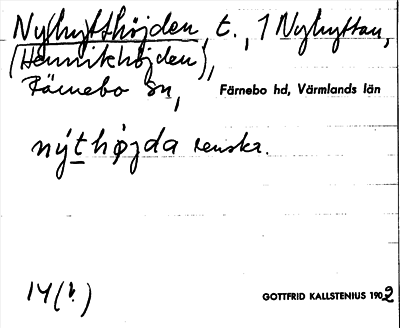 Nyhyttehöjden, t., 1 Nyhyttan,
(Henrikhöjden),
Färnebo sn, Färnebo hd, Värmlands län
nýthøjda
14(?)
GOTTFRID KALLSTENIUS 1902